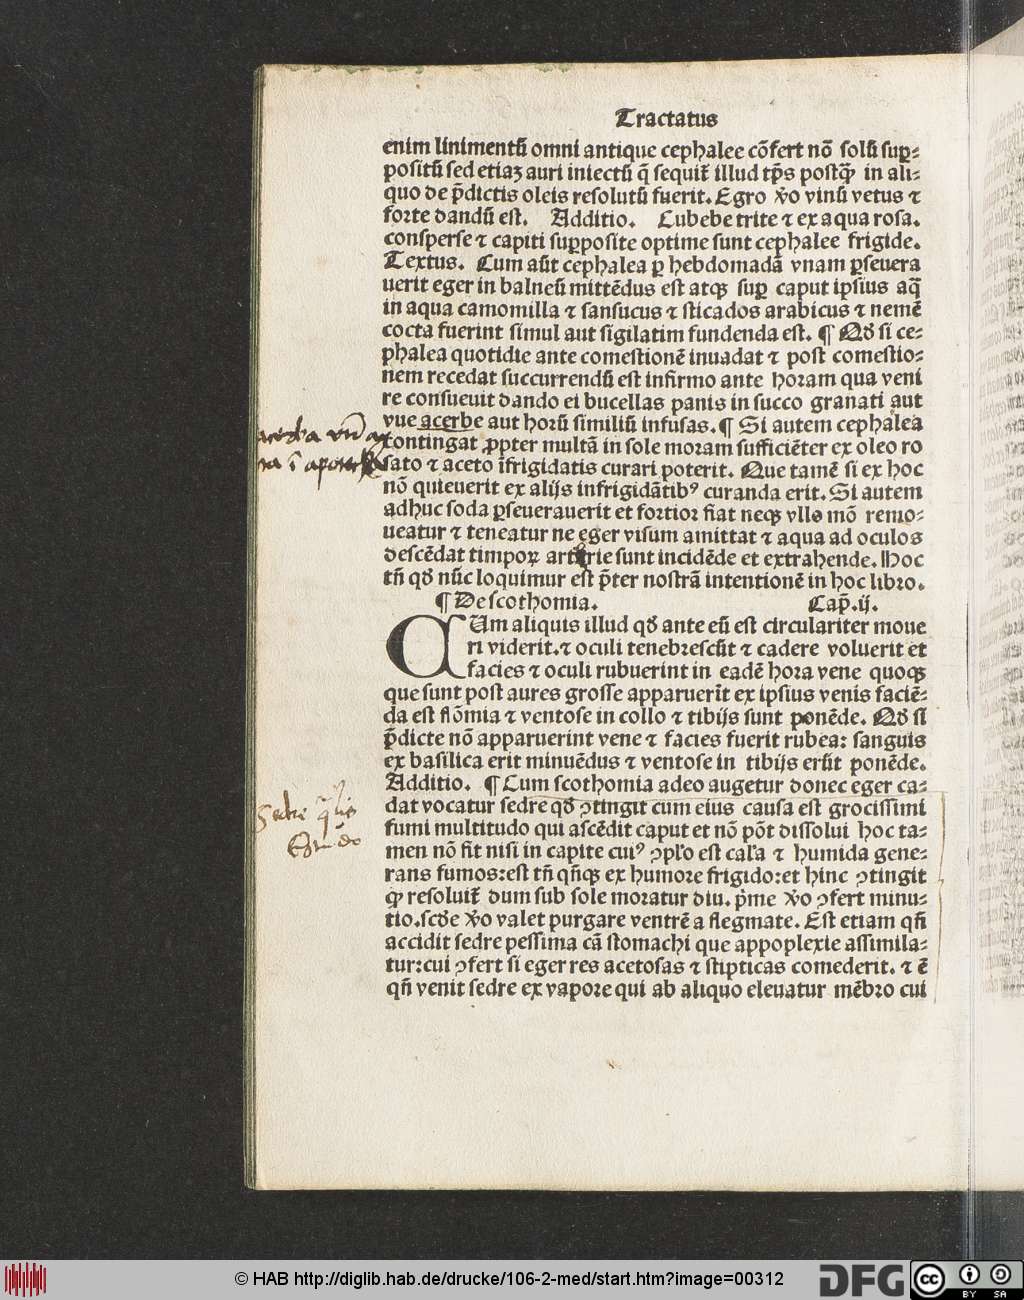 Tractatus
enim linimentū omni antique cephalee cōfert nō solū sup⸗
positū sed etiaꝫ auri iniectū q̄ sequit̄ illud tp̄s postꝗ̄ in ali⸗
quo de p̄dictis oleis resolutū fuerit. Egro v̊o vinū vetus ⁊
forte dandū est. Additio. Cubebe trite ⁊ ex aqua rosa.
consperse ⁊ capiti supposite optime sunt cephalee frigide.
Textus. Cum aūt cephalea ꝑ hebdomadā vnam ꝑseuera
uerit eger in balneū mittēdus est atqꝫ suꝑ caput ipsius aq̄
in aqua camomilla ⁊ sansucus ⁊ sticados arabicus ⁊ nemē
cocta fuerint simul aut sigilatim fundenda est. ¶ Qđ si ce⸗
phalea quotidie ante comestionē inuadat ⁊ post comestio⸗
nem recedat succurrendū est infirmo ante horam qua veni
re consueuit dando ei bucellas panis in succo granati aut
vue acerbe aut horū similiū infusas. ¶ Si autem cephalea
contingat ꝓpter multā in sole moram sufficiēter ex oleo ro
sato ⁊ aceto īfrigidatis curari poterit. Que tamē si ex hoc
nō quieuerit ex alijs infrigidātibꝰ curanda erit. Si autem
adhuc soda ꝑseuerauerit et fortior fiat neqꝫ vllo mō remo⸗
ueatur ⁊ teneatur ne eger visum amittat ⁊ aqua ad oculos
descēdat timpoꝝ arterie sunt incidēde et extrahende. Hoc
tn̄ qđ nūc loquimur est p̄ter nostrā intentionē in hoc libro.
¶ De scothomia. Cap̄. ij.
CUm aliquis illud qđ ante eū est circulariter moue
ri viderit. ⁊ oculi tenebrescūt ⁊ cadere voluerit et
facies ⁊ oculi rubuerint in eadē hora vene quoqꝫ
que sunt post aures grosse apparuerīt ex ipsius venis faciē⸗
da est flōmia ⁊ ventose in collo ⁊ tibijs sunt ponēde. Qđ si
p̄dicte nō apparuerint vene ⁊ facies fuerit rubea: sanguis
ex basilica erit minuēdus ⁊ ventose in tibijs erūt ponēde.
Additio. ¶ Cum scothomia adeo augetur donec eger ca⸗
dat vocatur sedre qđ ꝯtingit cum eius causa est grocissimi
fumi multitudo qui ascēdit caput et nō pōt dissolui hoc ta⸗
men nō fit nisi in capite cuiꝰ ꝯpl'o est cal'a ⁊ humida gene⸗
rans fumos: est tn̄ qn̄qꝫ ex humore frigido: et hinc ꝯtingit
ꝙ resoluit̄ dum sub sole moratur diu. p̄me v̊o ꝯfert minu⸗
tio. scđe v̊o valet purgare ventrē a flegmate. Est etiam qn̄
accidit sedre pessima cā stomachi que appoplexie assimila⸗
tur: cui ꝯfert si eger res acetosas ⁊ stipticas comederit. ⁊ ē
qn̄ venit sedre ex vapore qui ab aliquo eleuatur mēbro cui
© HAB http://diglib.hab.de/drucke/106-2-med/start.htm?image=00312
DFG
cc
BY SA